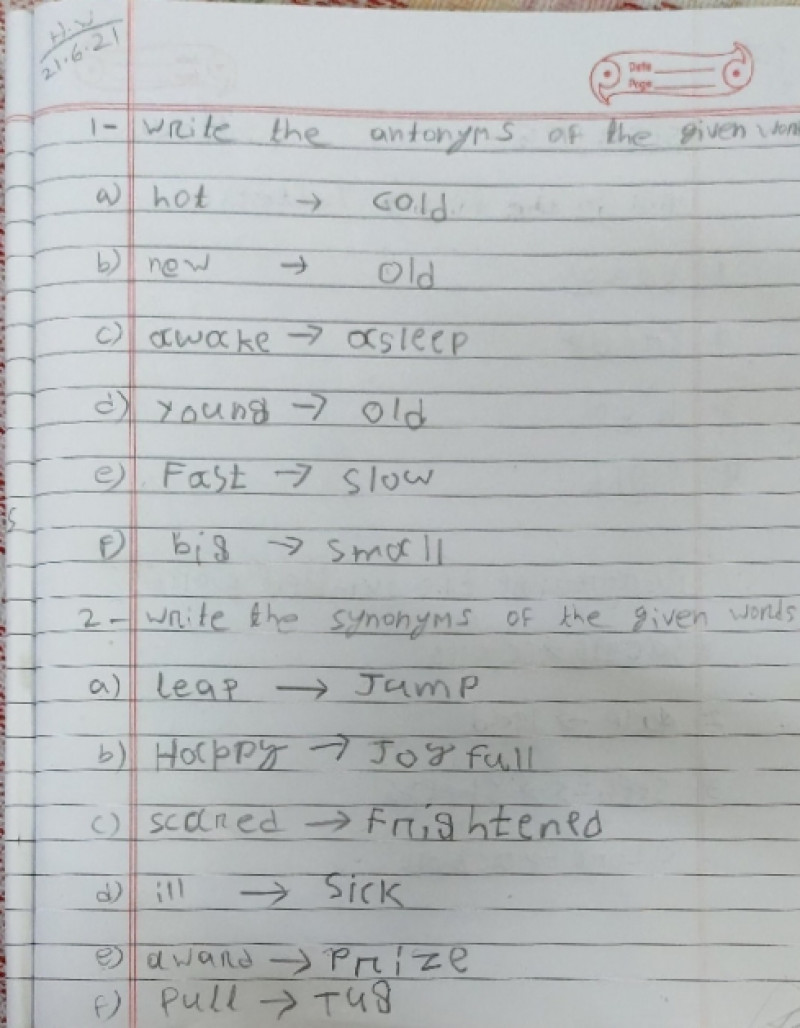 H.W
21.6.21
Date
Page
1- Write the antonyms of the given
a) hot → cold
b) new → Old
c) awake → asleep
d) Young → Old
e) Fast → Slow
F) big → Small
2- write the synonyms of the given words
a) leap → Jump
b) Happy → Joy full
c) scared → Frightened
d) ill → Sick
e) award → Prize
F) Pull → Tug